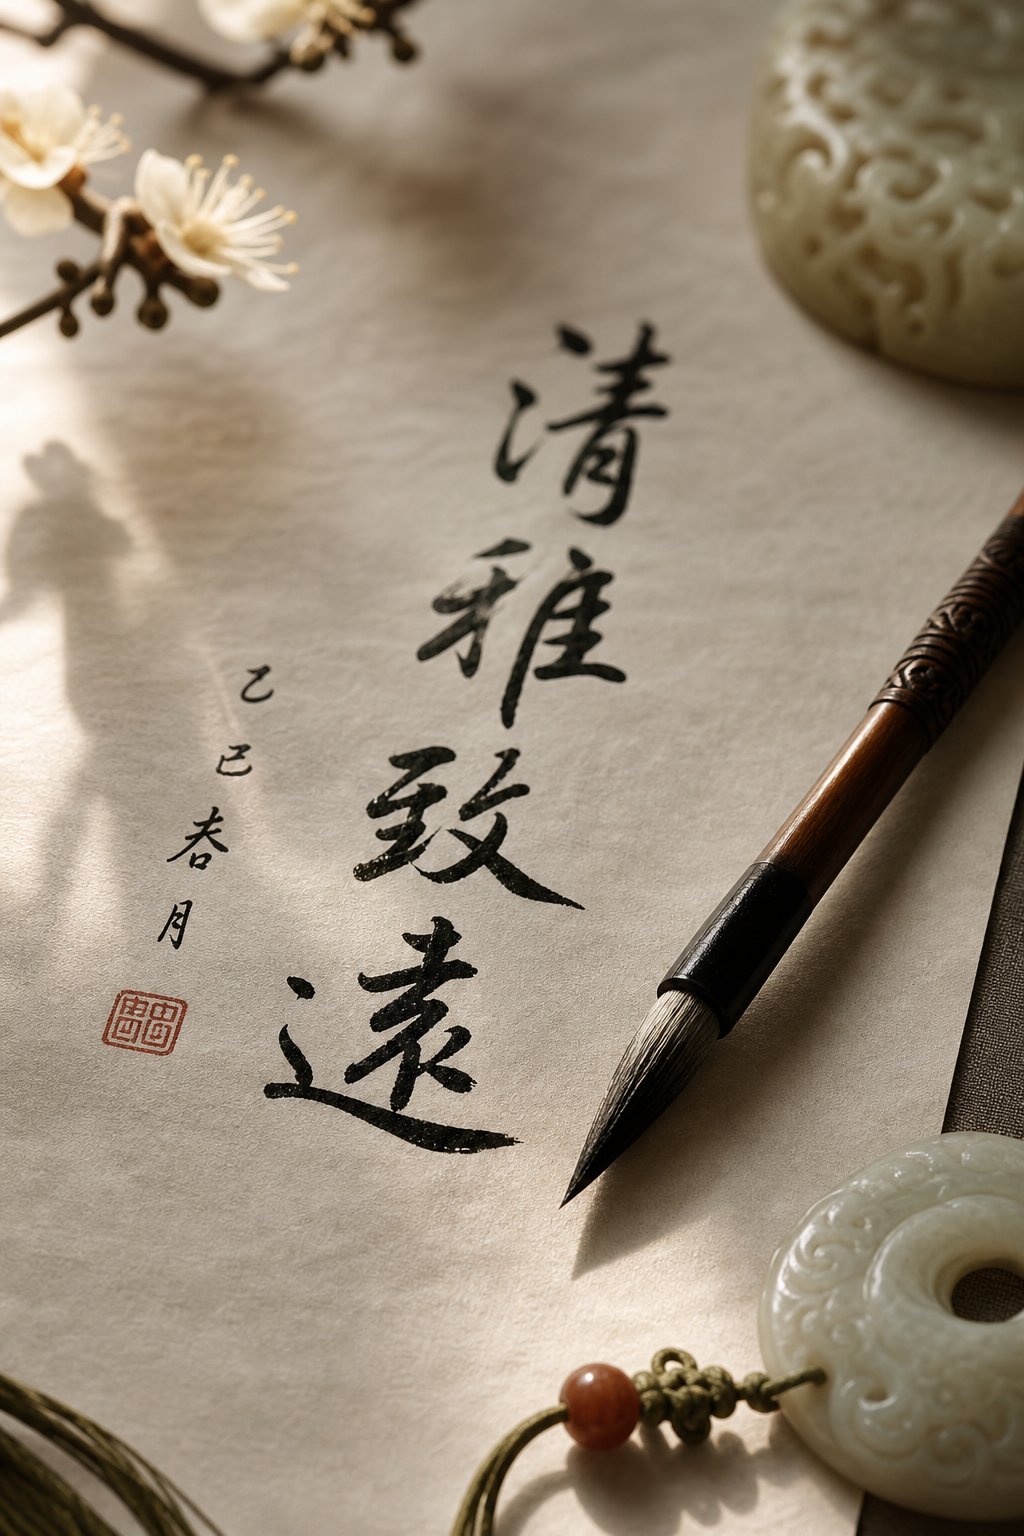 清雅致遠
乙巳春月